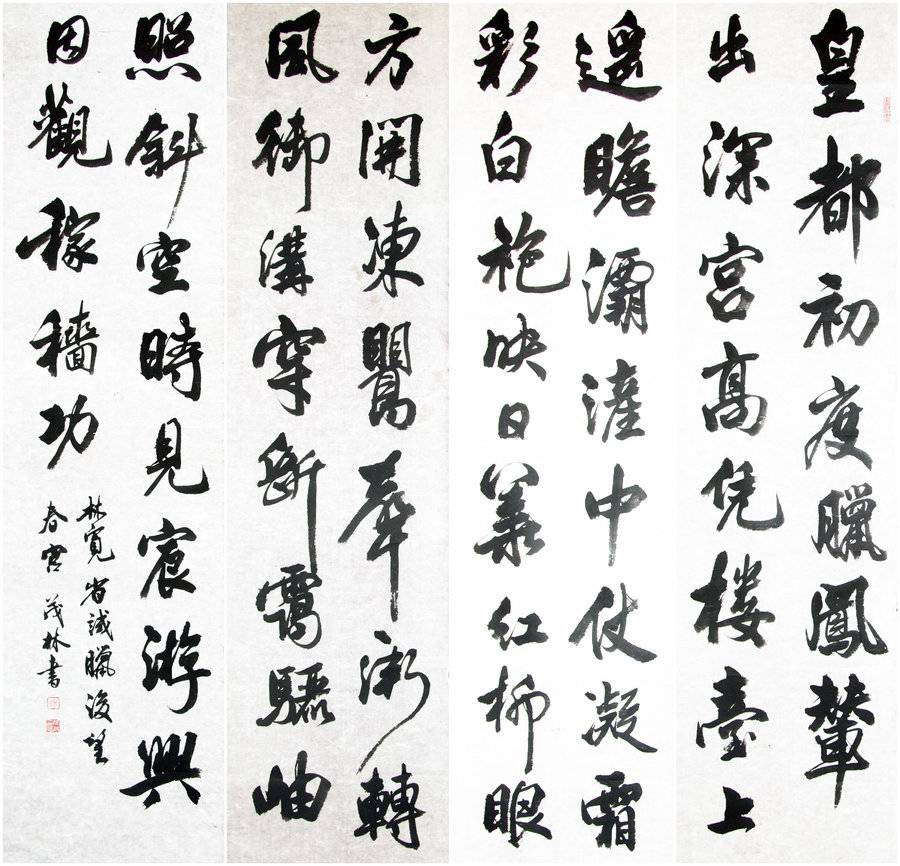 皇都初度臘鳳輦
出深宮高凭樓臺上
遙瞻灞滻中仗凝霜
彩白袍映日華紅柳眼
方開凍鶯聲漸轉
風御溝穿斷靄驪岫
照斜空時見宸游興
因觀稼穡功
林寬省試臘後望
春宮 茂林書